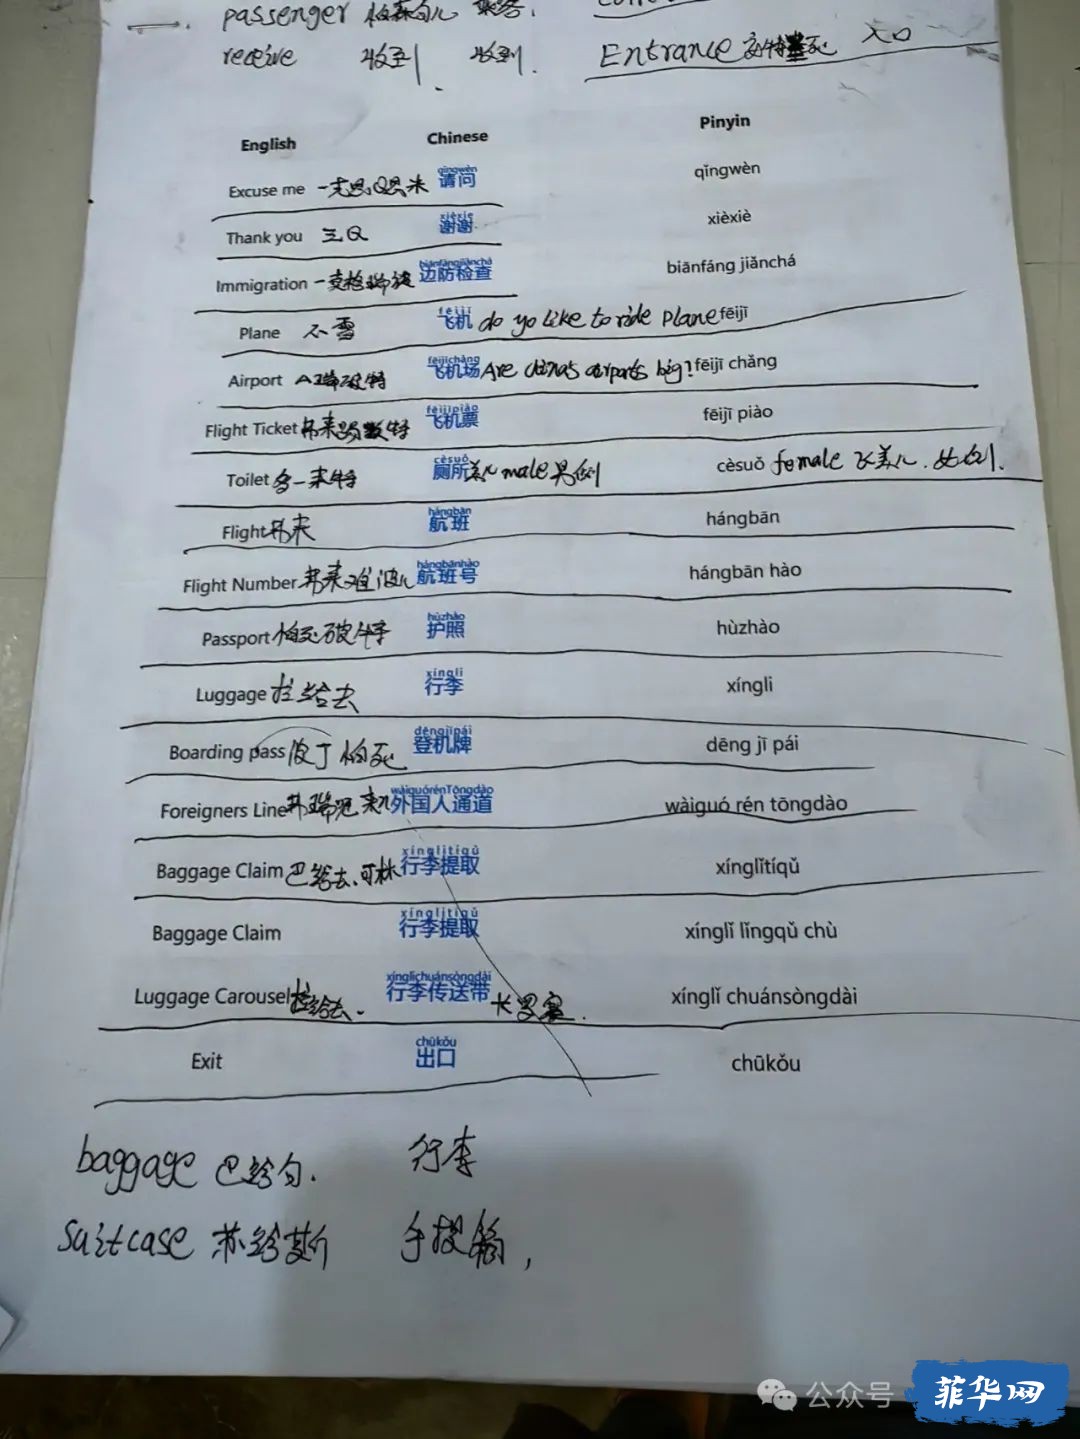 passenger 乘客.
receive 收到 收到.
Entrance 入口
English Chinese Pinyin
Excuse me qǐngwèn 请问 qǐngwèn
Thank you 三Q xièxie 谢谢 xièxiè
Immigration biānfángjiǎnchá 边防检查 biānfáng jiǎnchá
Plane 不雷 fēijī 飞机 do yo like to ride plane fēijī
Airport fēijīchǎng 飞机场 Are chinas airports big? fēijī chǎng
Flight Ticket fēijīpiào 飞机票 fēijī piào
Toilet cèsuǒ 厕所 male 男 cèsuǒ female
Flight 弗来 hángbān 航班 hángbān
Flight Number 弗来 hángbānhào 航班号 hángbān hào
Passport hùzhào 护照 hùzhào
Luggage 拉给去 xíngli 行李 xíngli
Boarding pass 怕死 dēngjīpái 登机牌 dēng jī pái
Foreigners Line wàiguórénTōngdào 外国人通道 wàiguó rén tōngdào
Baggage Claim 巴给去.可林 xínglǐtíqǔ 行李提取 xínglǐtíqǔ
Baggage Claim xínglǐtíqǔ 行李提取 xínglǐ lǐngqǔ chù
Luggage Carousel 拉给去. xínglǐchuánsòngdài 行李传送带 卡罗塞. xínglǐ chuánsòngdài
Exit chūkǒu 出口 chūkǒu
baggage 巴给句. 行李
suitcase 苏给斯 手提箱,
公众号 菲华网